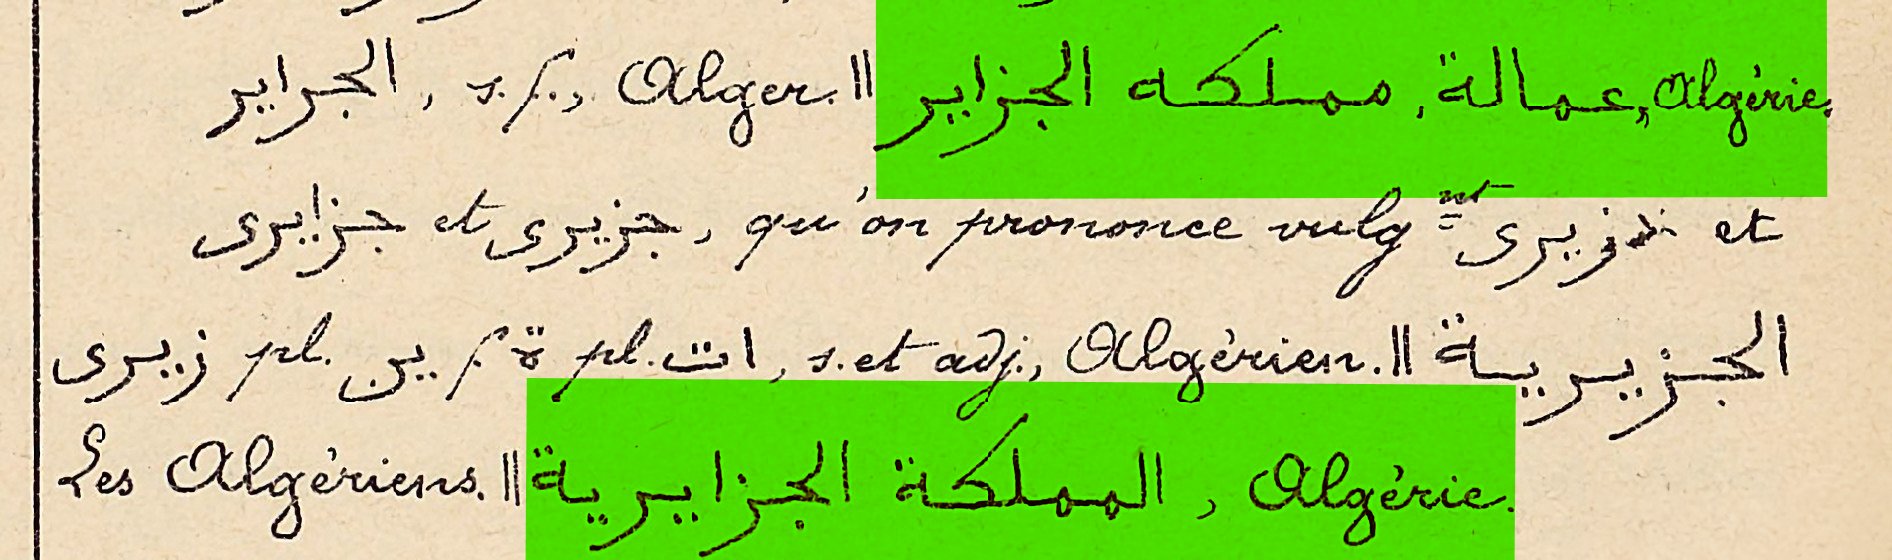 الجزاير, s.f., Alger. || مملكه الجزاير, عمالة „, Algérie.
جزايرى et جزيرى, qu'on prononce vulgᵗ et
زيرى pl. ين f. ة pl. ات, s. et adj., Algérien. || الجزيرية
Les Algériens. || المملكة الجزايرية, Algérie.